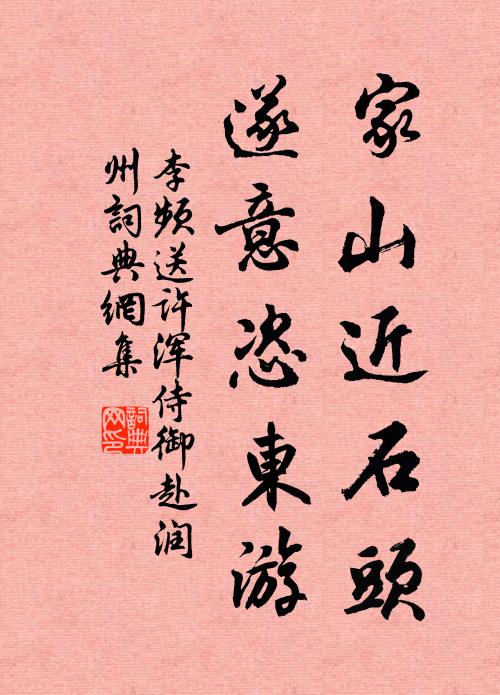 家山近石頭
遂意恣東游
李频送许浑侍御赴润
州詞典網集
詞典
网印